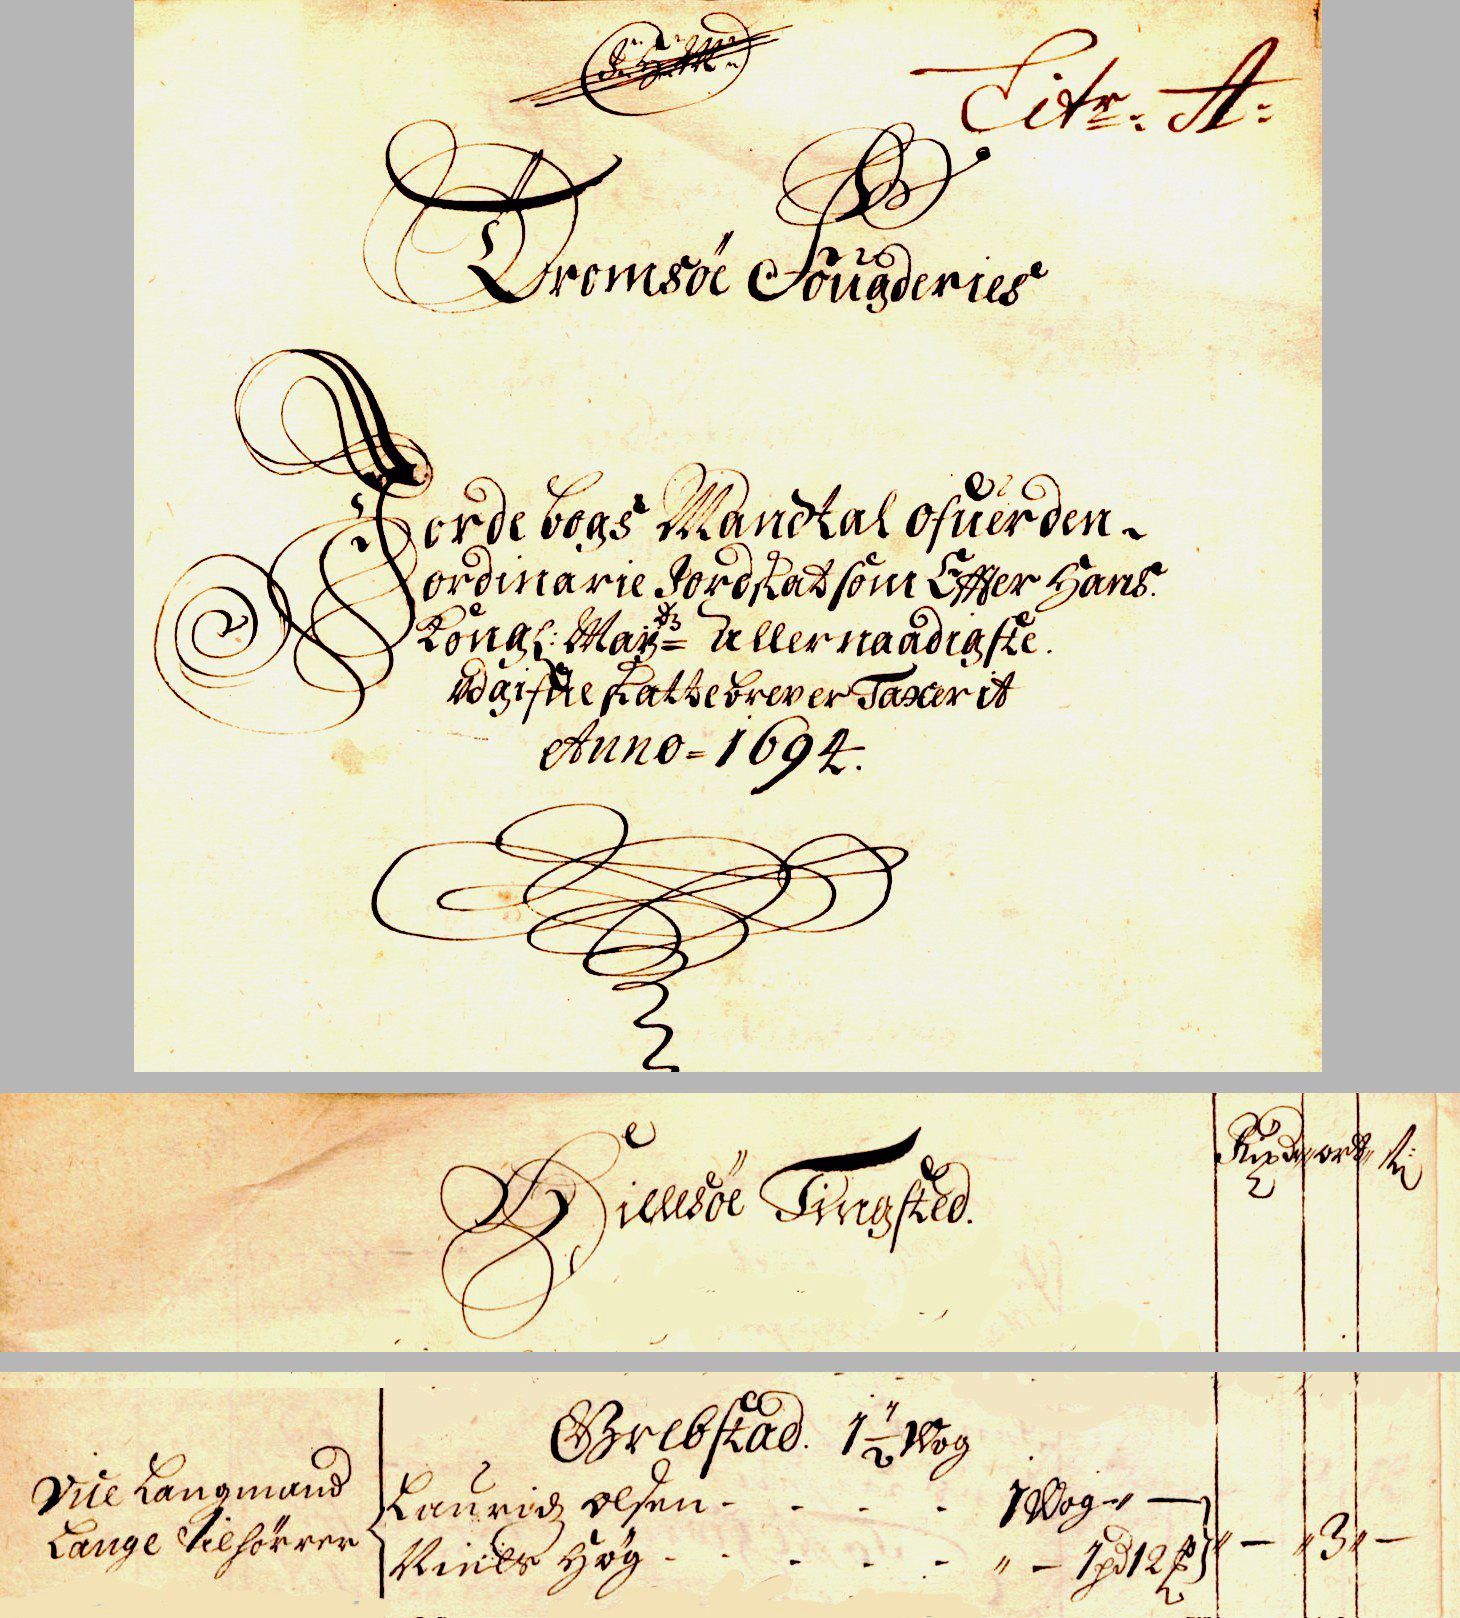 Litr. A:
Tromsöe Fougderies
Jordebogs Mandtal ofuer den
ordinarie Jordskat som Effter Hans
Kongl: Mayts Allernaadigste
udgifne Skattebrever Taxerit
Anno = 1694.
Hillesöe Tingsted.
Rixdr ort ſ:
Grebstad. 1 1/2 Wog
Vije Langmand
Lange Tilhörrer
Lauridz Olsen - - - - 1 Wog - " —
Niels Hög - - - - - " — 1 pd 12 " — " 3 " —